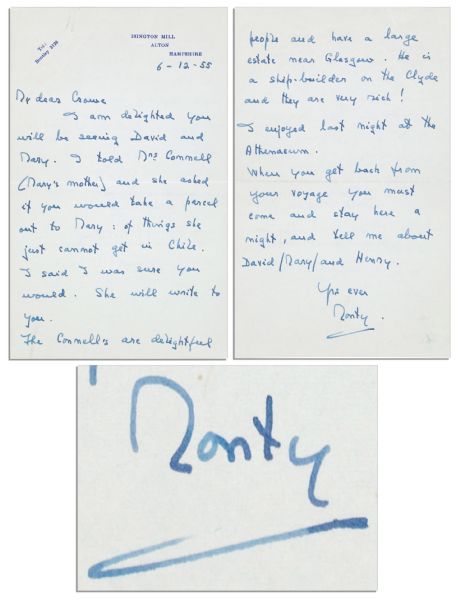 ISINGTON MILL
ALTON
HAMPSHIRE
Tel:
Bentley 3126
6-12-55
My dear Crowe
I am delighted you
will be seeing David and
Mary. I told Mrs Connell
(Mary's mother) and she asked
if you would take a parcel
out to Mary: of things she
just cannot get in Chile.
I said I was sure you
would. She will write to
you.
The Connell's are delightful
people and have a large
estate near Glasgow. He is
a ship-builder on the Clyde
and they are very rich!
I enjoyed last night at the
Athenaeum.
When you get back from
your voyage you must
come and stay here a
night, and tell me about
David/Mary/and Henry.
Yrs ever
Monty.
Monty